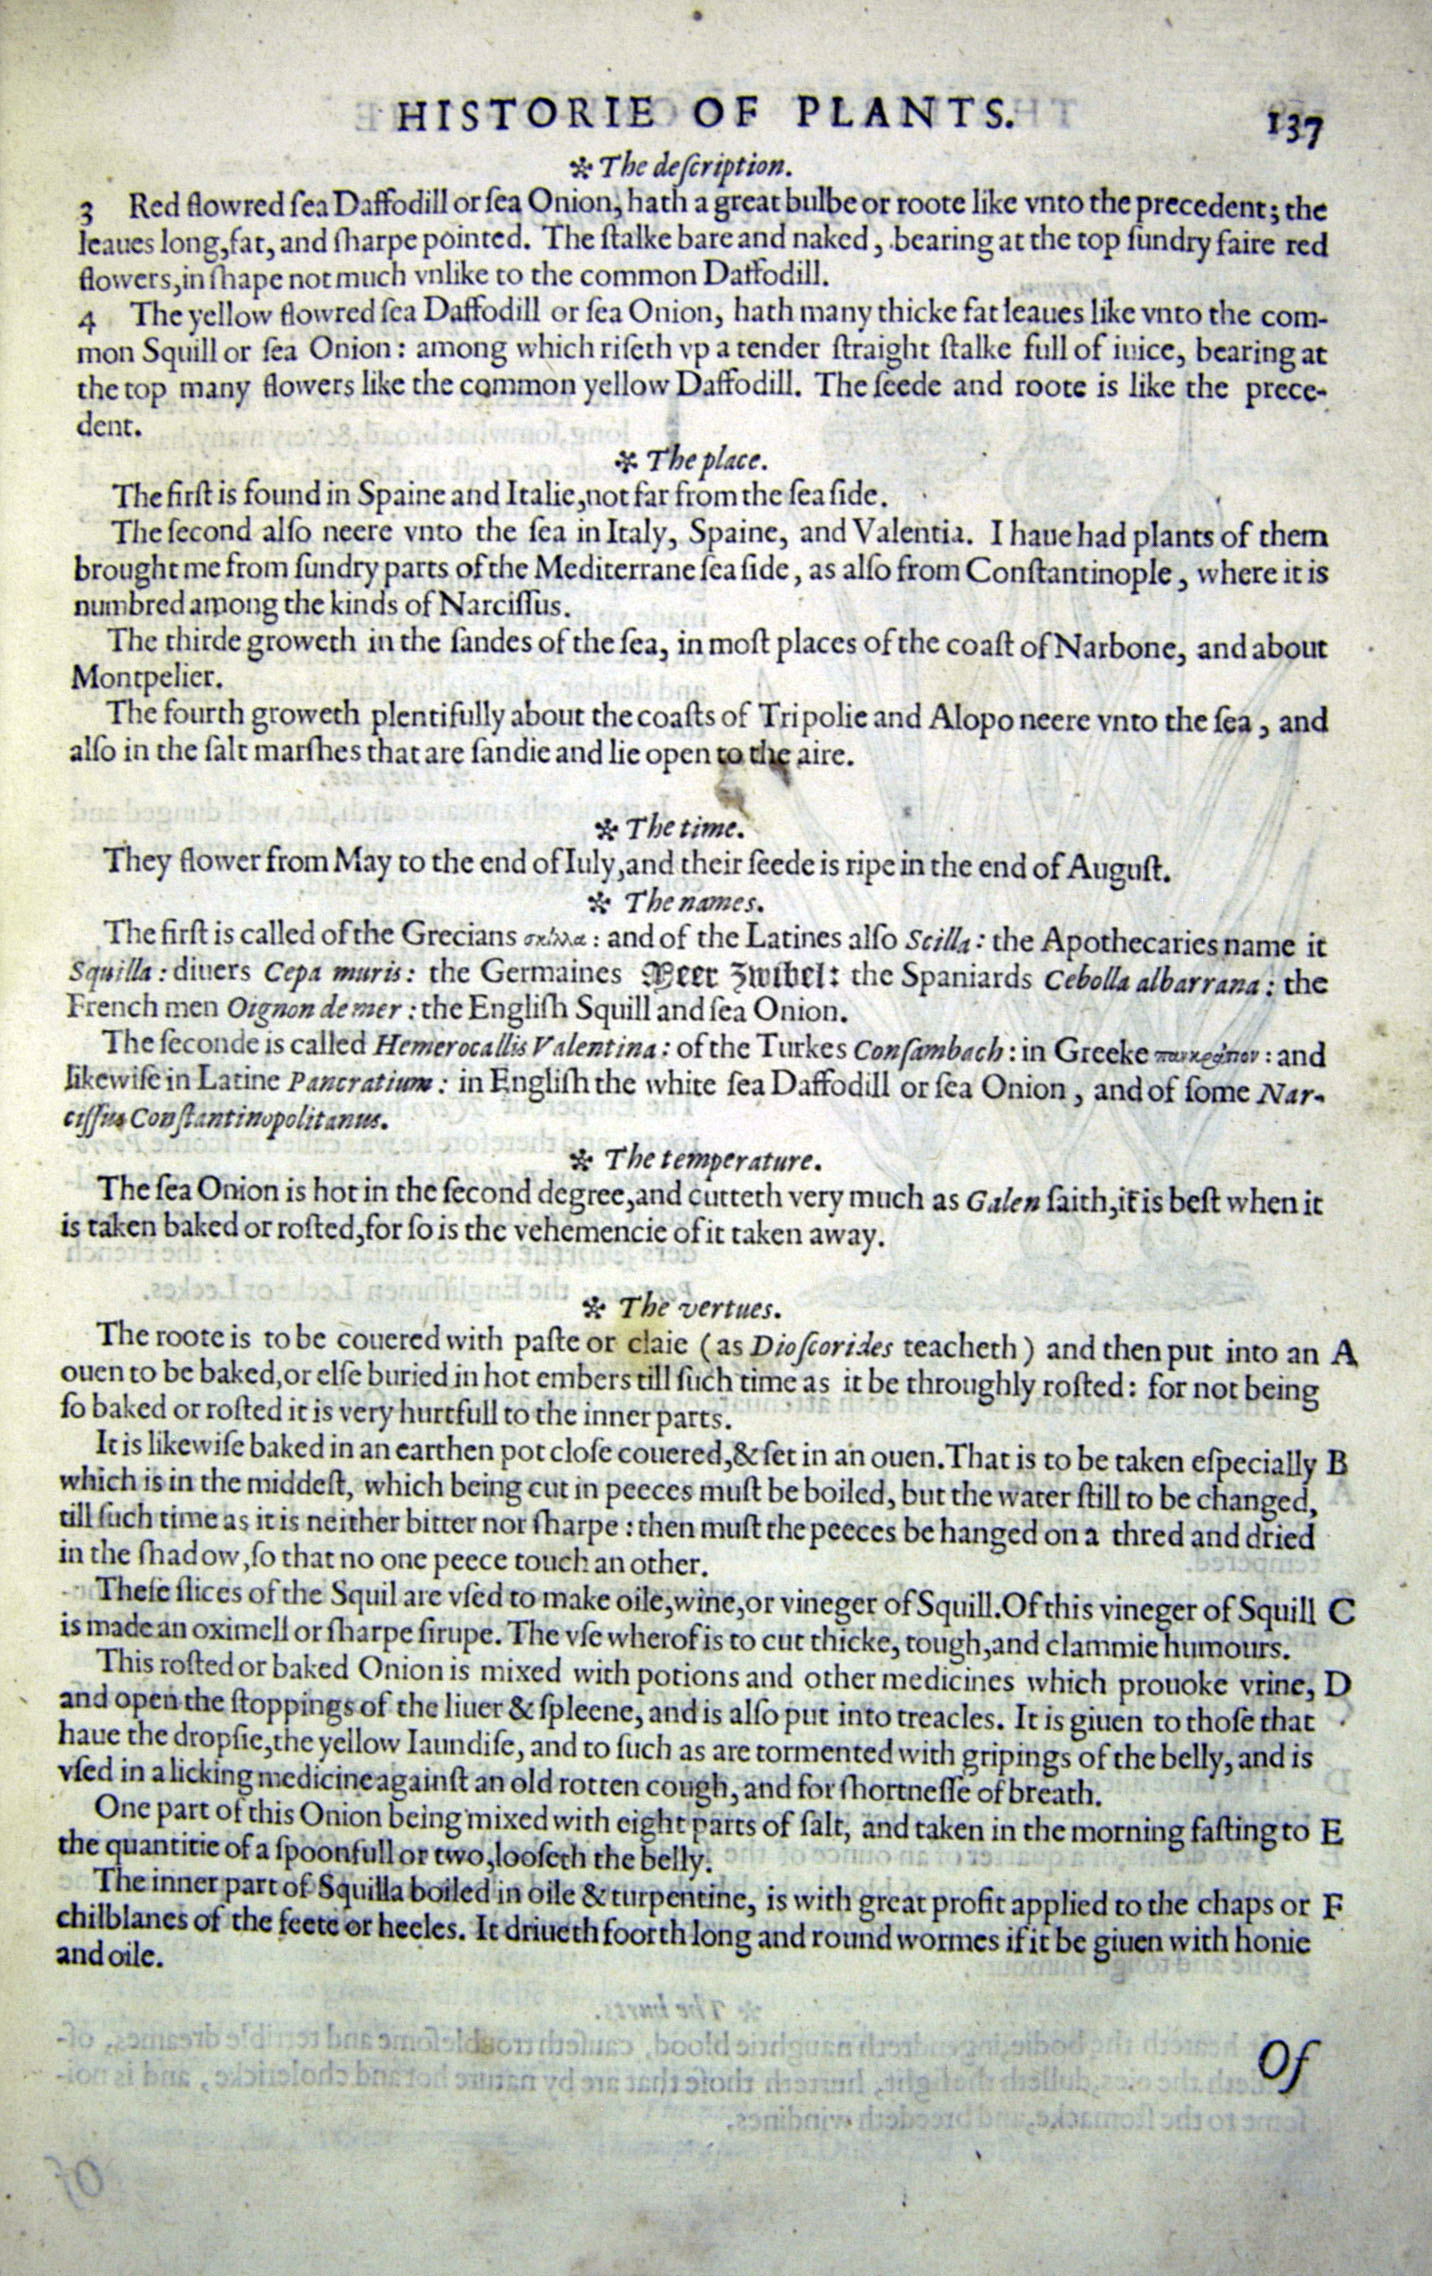 HISTORIE OF PLANTS. 137
✲ The deſcription.
3 Red flowred ſea Daffodill or ſea Onion, hath a great bulbe or roote like vnto the precedent; the
leaues long, fat, and ſharpe pointed. The ſtalke bare and naked, bearing at the top ſundry faire red
flowers, in ſhape not much vnlike to the common Daffodill.
4 The yellow flowred ſea Daffodill or ſea Onion, hath many thicke fat leaues like vnto the com-
mon Squill or ſea Onion: among which riſeth vp a tender ſtraight ſtalke full of iuice, bearing at
the top many flowers like the common yellow Daffodill. The ſeede and roote is like the prece-
dent.
✲ The place.
The firſt is found in Spaine and Italie, not far from the ſea ſide.
The ſecond alſo neere vnto the ſea in Italy, Spaine, and Valentia. I haue had plants of them
brought me from ſundry parts of the Mediterrane ſea ſide, as alſo from Conſtantinople, where it is
numbred among the kinds of Narciſſus.
The thirde groweth in the ſandes of the ſea, in moſt places of the coaſt of Narbone, and about
Montpelier.
The fourth groweth plentifully about the coaſts of Tripolie and Alopo neere vnto the ſea, and
alſo in the ſalt marſhes that are ſandie and lie open to the aire.
✲ The time.
They flower from May to the end of Iuly, and their ſeede is ripe in the end of Auguſt.
✲ The names.
The firſt is called of the Grecians σκίλλα: and of the Latines alſo Scilla: the Apothecaries name it
Squilla: diuers Cepa muris: the Germaines Meer Zwibel: the Spaniards Cebolla albarrana: the
French men Oignon de mer: the Engliſh Squill and ſea Onion.
The ſeconde is called Hemerocallis Valentina: of the Turkes Conſambach: in Greeke παγκράτιον: and
likewiſe in Latine Pancratium: in Engliſh the white ſea Daffodill or ſea Onion, and of ſome Nar-
ciſſus Conſtantinopolitanus.
✲ The temperature.
The ſea Onion is hot in the ſecond degree, and cutteth very much as Galen ſaith, it is beſt when it
is taken baked or roſted, for ſo is the vehemencie of it taken away.
✲ The vertues.
The roote is to be couered with paſte or claie (as Dioſcorides teacheth) and then put into an A
ouen to be baked, or elſe buried in hot embers till ſuch time as it be throughly roſted: for not being
ſo baked or roſted it is very hurtfull to the inner parts.
It is likewiſe baked in an earthen pot cloſe couered, & ſet in an ouen. That is to be taken eſpecially B
which is in the middeſt, which being cut in peeces muſt be boiled, but the water ſtill to be changed,
till ſuch time as it is neither bitter nor ſharpe: then muſt the peeces be hanged on a thred and dried
in the ſhadow, ſo that no one peece touch an other.
Theſe ſlices of the Squil are vſed to make oile, wine, or vineger of Squill. Of this vineger of Squill C
is made an oximell or ſharpe ſirupe. The vſe wherof is to cut thicke, tough, and clammie humours.
This roſted or baked Onion is mixed with potions and other medicines which prouoke vrine, D
and open the ſtoppings of the liuer & ſpleene, and is alſo put into treacles. It is giuen to thoſe that
haue the dropſie, the yellow Iaundiſe, and to ſuch as are tormented with gripings of the belly, and is
vſed in a licking medicine againſt an old rotten cough, and for ſhortneſſe of breath.
One part of this Onion being mixed with eight parts of ſalt, and taken in the morning faſting to E
the quantitie of a ſpoonfull or two, looſeth the belly.
The inner part of Squilla boiled in oile & turpentine, is with great profit applied to the chaps or F
chilblanes of the feete or heeles. It driueth foorth long and round wormes if it be giuen with honie
and oile.
Of